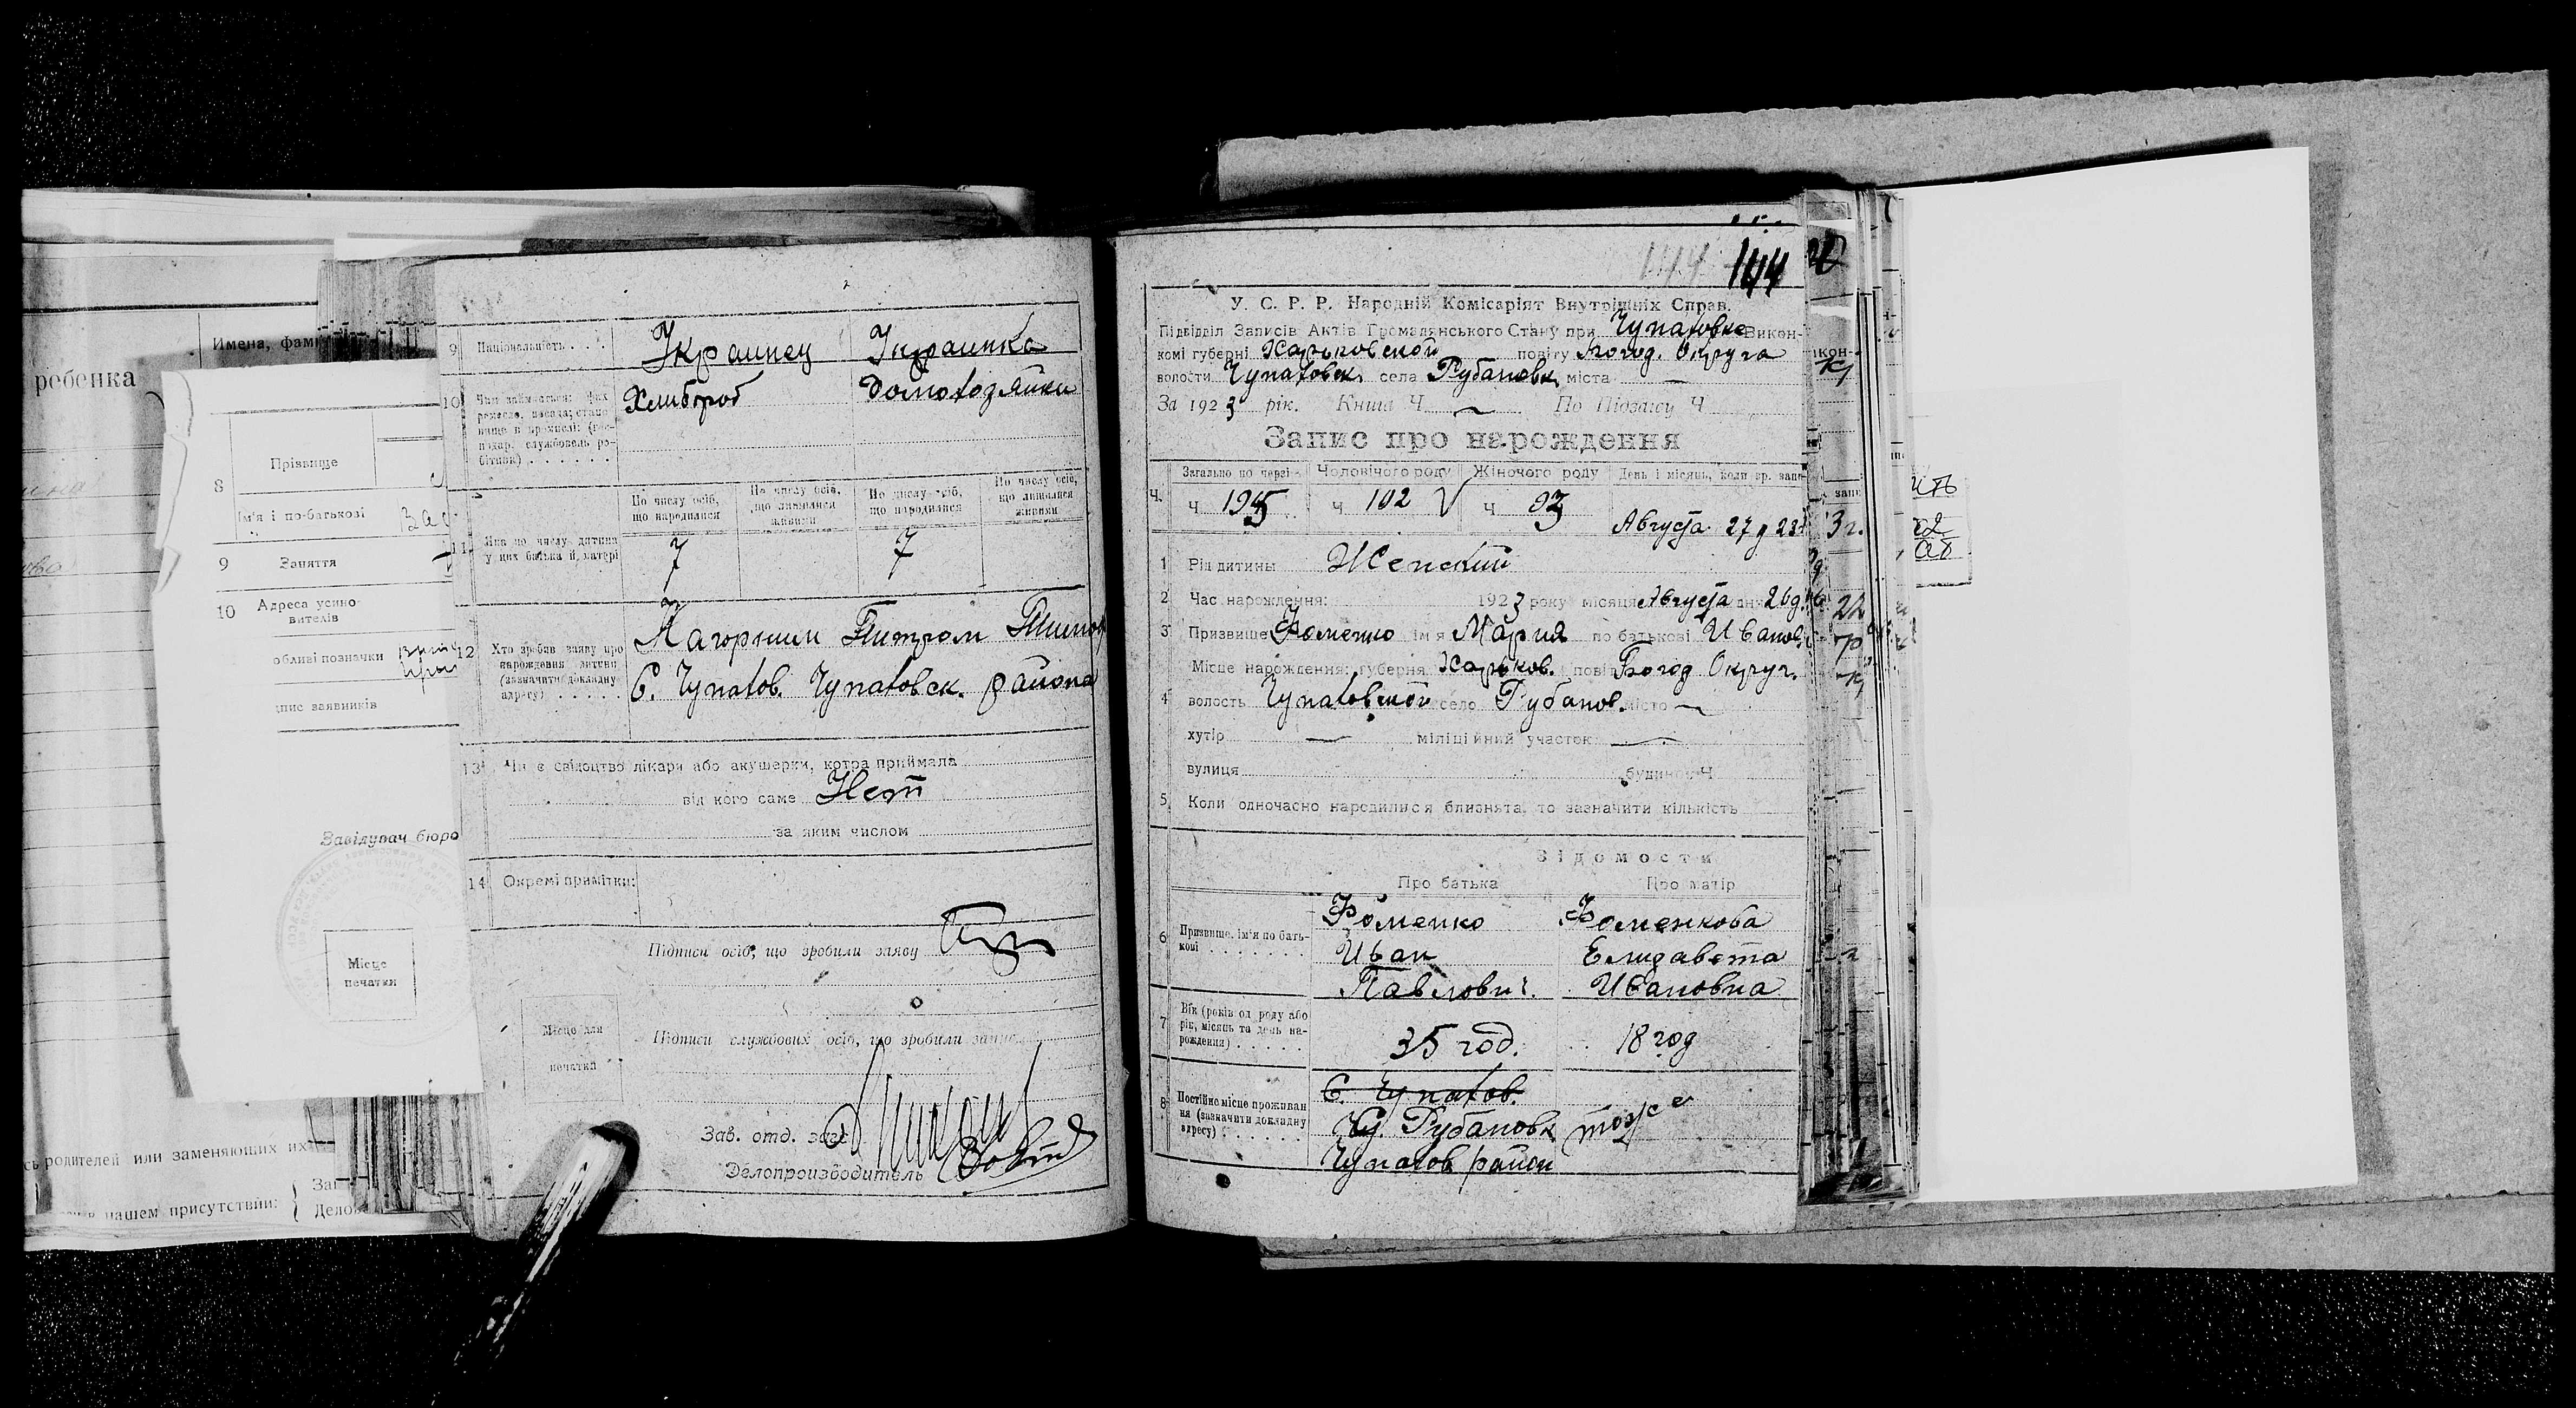 Имена, фам
ребенка
Прізвище
8
Ім'я і по-батькові
9 Заняття
10 Адреса усино-
вителів
обливі позначки
пис заявників
Завідувач бюро
Місце
печатки
родителей или заменяющих их
в нашем присутствии:
Зав
Дело
9 Національність . . . . Украинец Украинка
10 Хлибороб Домохозяйки
По числу осіб, що народилися
По числу осіб, що лишилися живими
По числу осіб, що народилися
По числу осіб, що лишилися живими
11 Яка по числу дитина у цих батька й матері 7 7
12 Хто зробив заяву про народження дитини (зазначити докладну адресу) . . . . .
Нагорним Питром
С. Чупахов. Чупаховск. района
13 Чи є свідоцтво лікаря або акушерки, котра приймала
від кого саме Нет
за яким числом
14 Окремі примітки:
Підписи осіб, що зробили заяву
Місце для
печатки
Підписи службових осіб, що зробили запис
Зав. отд. загс
Делопроизводитель
144 144
У. С. Р. Р. Народній Комісаріят Внутрішніх Справ.
Підвідділ Записів Актів Громадянського Стану при Чупаховке Викон-
комі губерні Харьковской повіту Богод. Округа
волости Чупаховск. села Рубановк, міста —
За 1923 рік. Книга Ч. По Підзагсу Ч
Запис про нарождення
Загально по черзі Чоловічого роду Жіночого роду День і місяць, коли зр. запи
Ч. ч 195 ч 102 V ч 93 Августа 27 д 23
1 Рід дитины Женский
2 Час нарождення: 1923 року місяця Августа дня 26 д.
3 Призвище Фоменко ім'я Мария по батькові Иванов.
Місце нарождення: губерня Харьков. повіт Богод Округ.
4 волость Чупаховской село Рубанов. місто —
хутір — міліційний участок —
вулиця будинок Ч
5 Коли одночасно народилися близнята, то зазначити кількість
Відомости
Про батька Про матір
6 Призвище, ім'я по батькові . . . . . . .
Фоменко Фоменкова
Иван Елизавета
Павлович. Ивановна
7 Вік (років од роду або рік, місяць та день нарождення) . . . . . 35 год. 18 год
8 Постійно місце проживання (зазначити докладну адресу) . . . . . .
С. Чупахов.
Рубановк тоже
Чупахов район